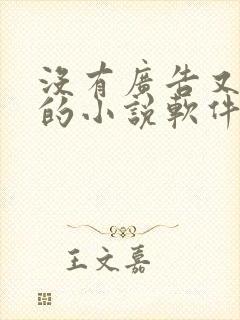 沒有廣告又
的小說軟件
王文嘉